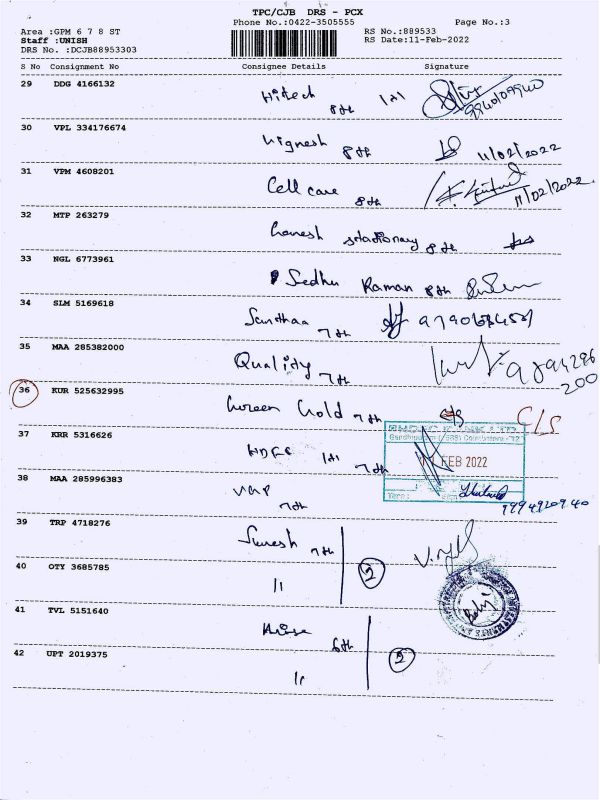 TPC/CJB DRS - PCX
Phone No.:0422-3505555 Page No.:3
Area :GPM 6 7 8 ST RS No.:889533
Staff :UNISH RS Date:11-Feb-2022
DRS No. :DCJB88953303
S No Consignment No Consignee Details Signature
29 DDG 4166132 Hitech 8th 9940109940
30 VPL 334176674 Vignesh 8th 11/02/2022
31 VPM 4608201 Cell care 8th 11/02/2022
32 MTP 263279 Ganesh stationary 8th
33 NGL 6773961 Sedhu Raman 8th
34 SLM 5169618 7th
35 MAA 285382000 Quality 7th
36 KUR 525632995 Green Gold 7th CLS
37 KRR 5316626 HDFC 7th
FEB 2022
38 MAA 285996383 VGP 7th 9994920940
39 TRP 4718276 Suresh 7th
40 OTY 3685785 11 2
41 TVL 5151640 6th
42 UPT 2019375 11 2